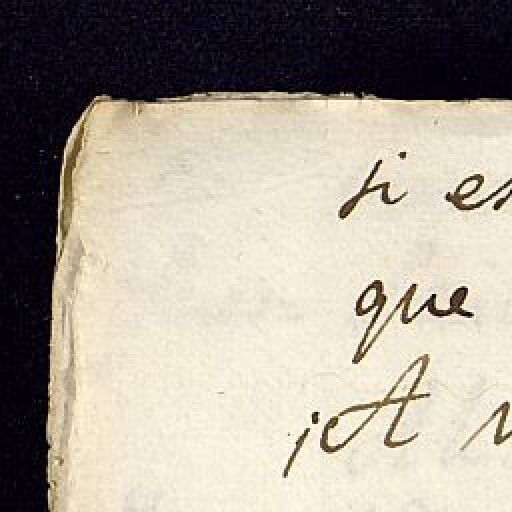 si es
que
¡A